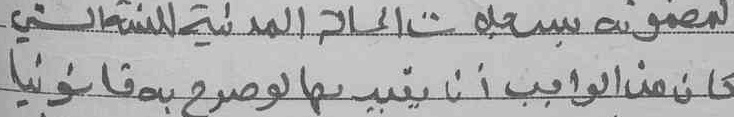 لمضمونه بسجلات الحالة المدنية للسنة التي
كان من الواجب أن يقيد بها لو صرح به قانونيا